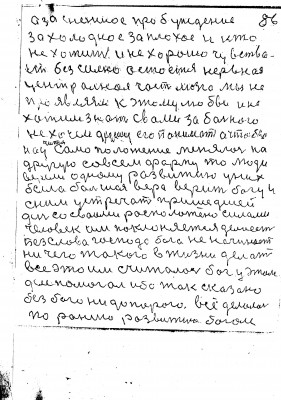 а за гненное пробуждение 86
за холодное за плохое и што
не хотит и не хорошо чувства
ет без силно остоется нервная
централная часть мозга мы не
проявляли к этому любви и не
хотим знат свами за банного
не хочем другому его понимат а чтобы
над ним само положение менялос на
другую совсем форму то люди
верили одному развитию у них
была балшая вера верит богу и
с ним устречат пришедшей
ден со своми расположено силами
человек им поклоняется делает
без слова господе бога не начинает
ни чего такого в жизни делат
все это им считалос бог у этом
деле помогал ибо так сказано
без бога ни до порога. всё делалос
по ранию развитию богом